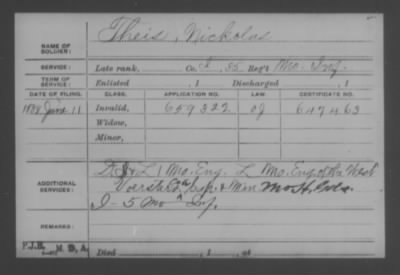 NAME OF SOLDIER: Theis, Nickolas
SERVICE: Late rank, Co. I, 35 Reg't Mo. Inf.
TERM OF SERVICE: Enlisted , 1 Discharged , 1
DATE OF FILING. CLASS. APPLICATION NO. LAW CERTIFICATE NO.
1888 June 11 Invalid, 659322 647463
Widow,
Minor,
ADDITIONAL SERVICES: L 1 Mo. Eng. L Mo. Eng. of the West
Co. + Min Mo. H. Gds.
I - 5 Mo Inf.
REMARKS:
Died , 1 , at